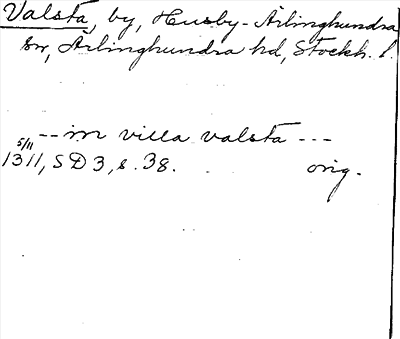 Valsta, by, Husby-Ärlinghundra
sn, Ärlinghundra hd, Stockh. l.
--in villa valsta ---
5/11
1311, SD3, s. 38. orig.